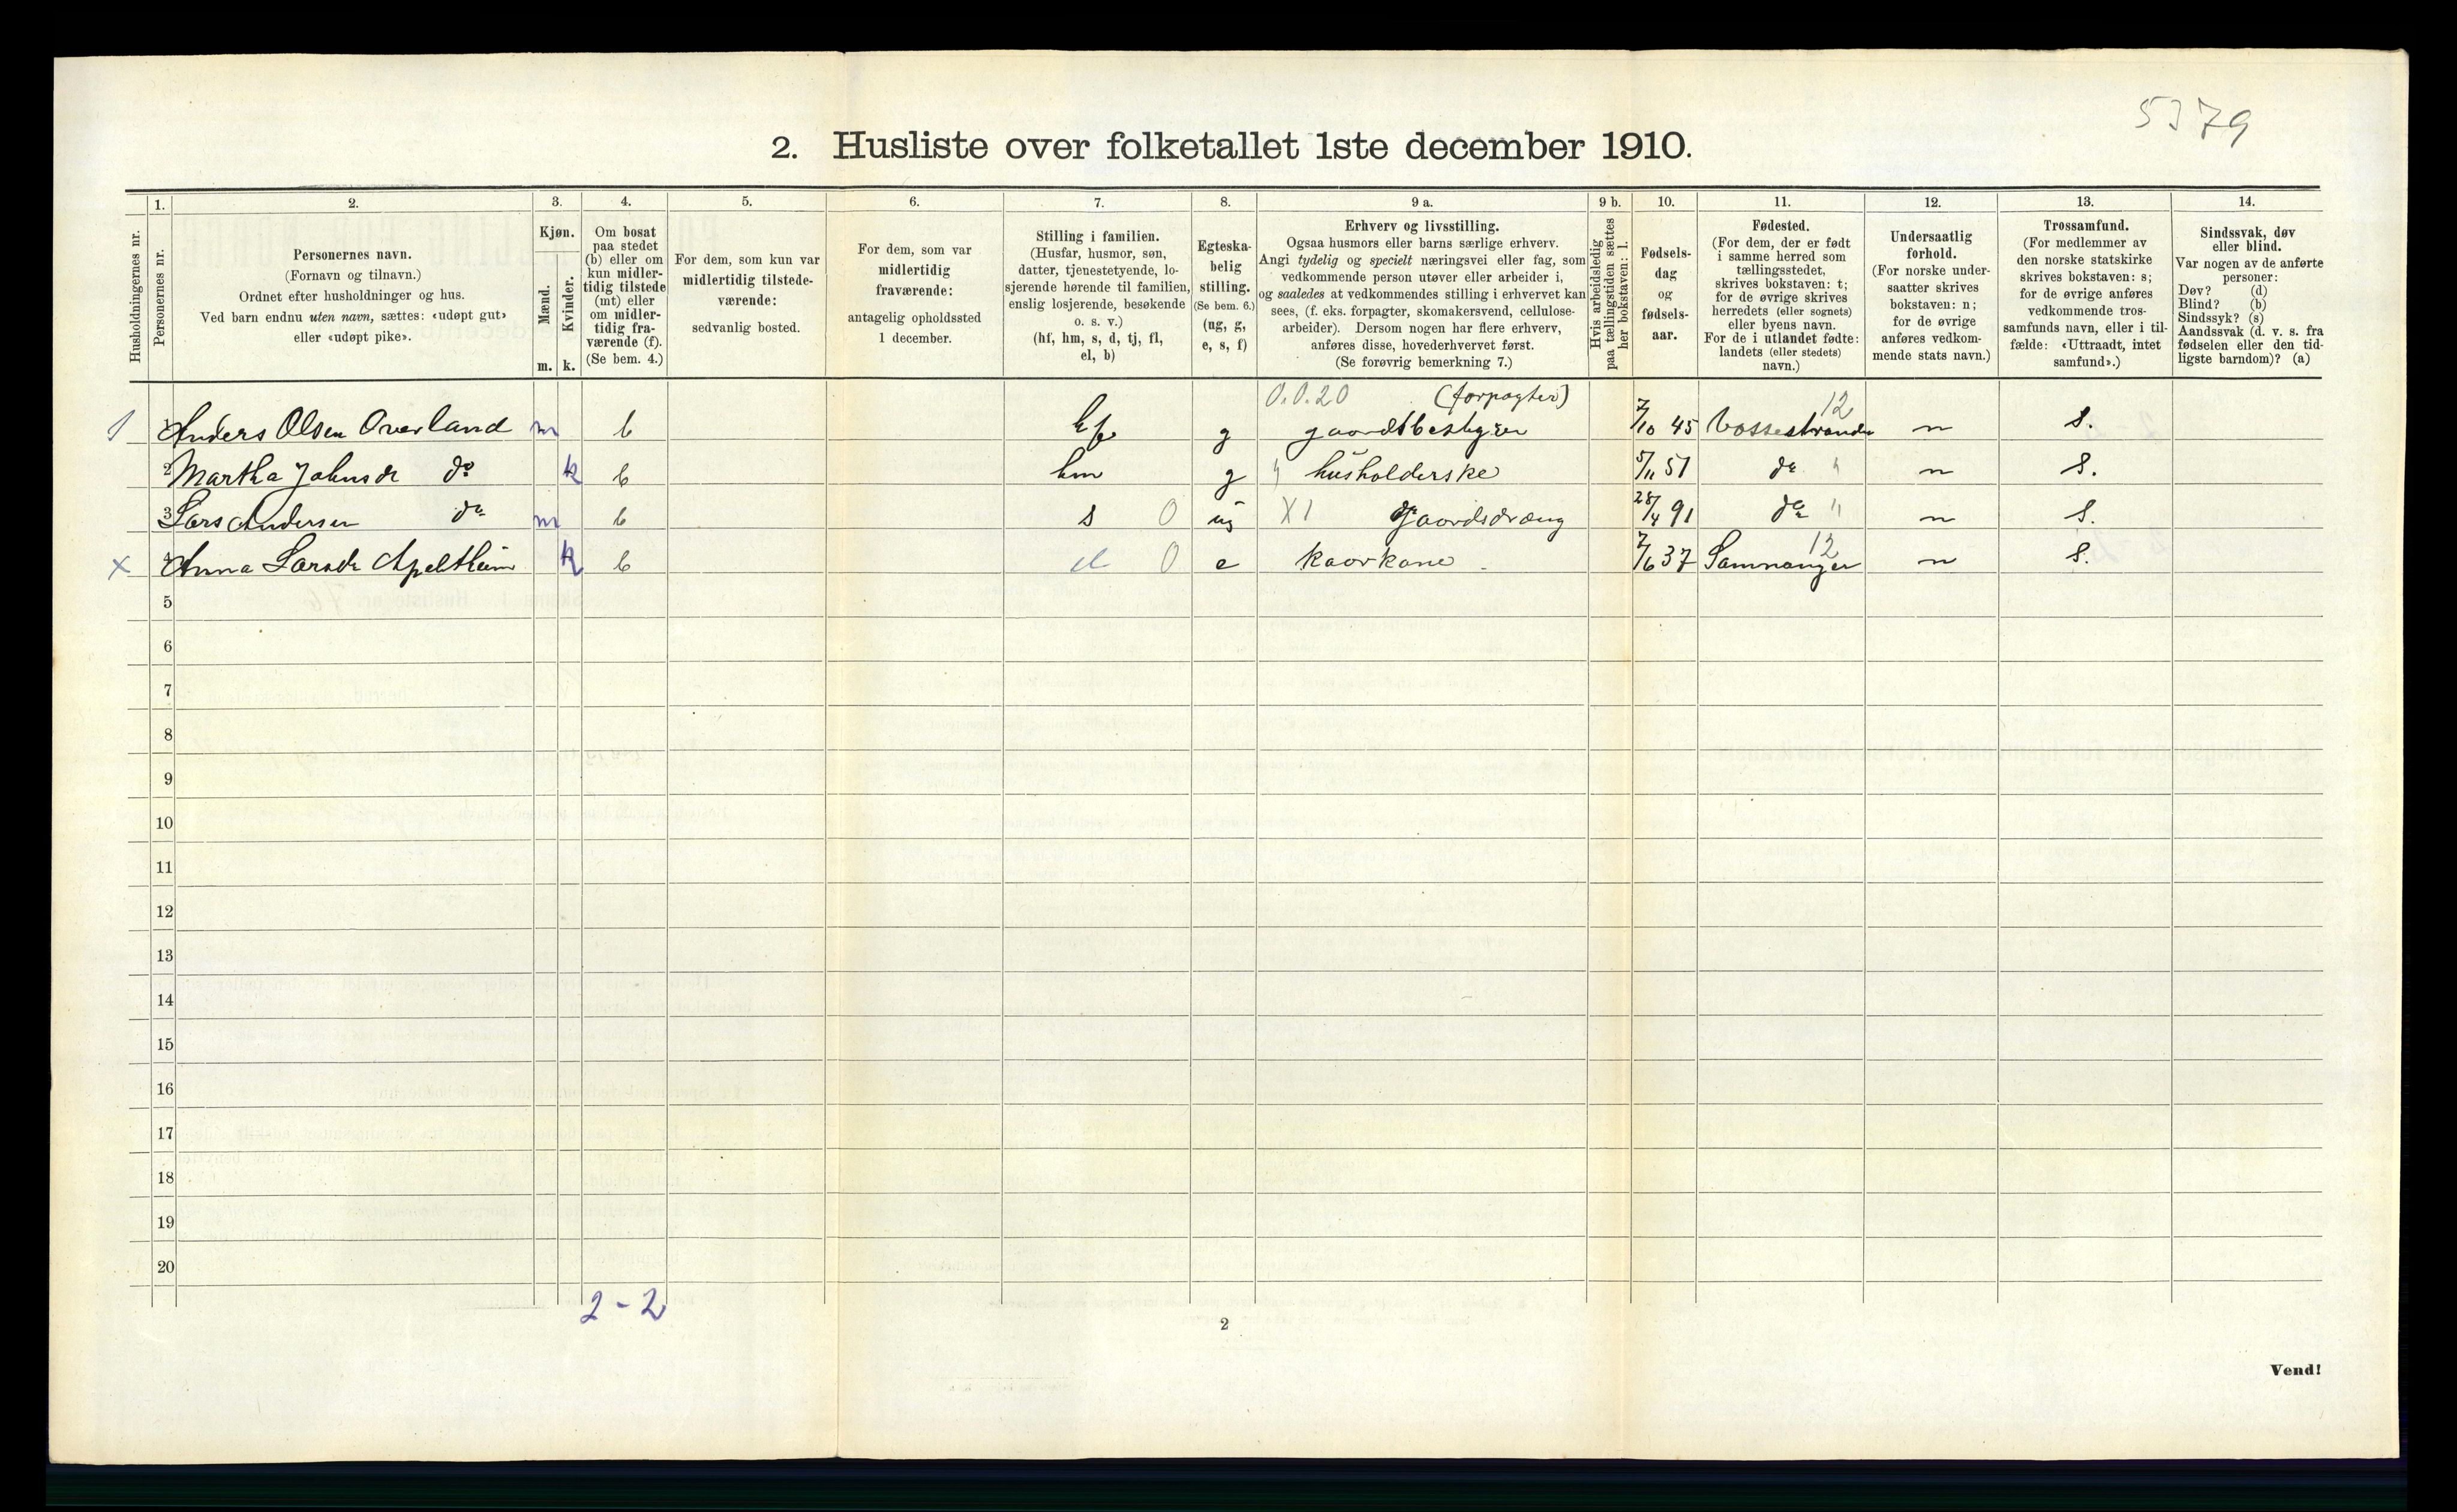 5379
2. Husliste over folketallet 1ste december 1910.
Husholdningernes nr.
1.
Personernes nr.
2.
Personernes navn.
(Fornavn og tilnavn.)
Ordnet efter husholdninger og hus.
Ved barn endnu uten navn, sættes: «udøpt gut»
eller «udøpt pike».
3.
Kjøn.
Mænd.
Kvinder.
m. k.
4.
Om bosat
paa stedet
(b) eller om
kun midler-
tidig tilstede
(mt) eller
om midler-
tidig fra-
værende (f).
(Se bem. 4.)
5.
For dem, som kun var
midlertidig tilstede-
værende:
sedvanlig bosted.
6.
For dem, som var
midlertidig
fraværende:
antagelig opholdssted
1 december.
7.
Stilling i familien.
(Husfar, husmor, søn,
datter, tjenestetyende, lo-
sjerende hørende til familien,
enslig losjerende, besøkende
o. s. v.)
(hf, hm, s, d, tj, fl,
el, b)
8.
Egteska-
belig
stilling.
(Se bem. 6.)
(ug, g,
e, s, f)
9 a.
Erhverv og livsstilling.
Ogsaa husmors eller barns særlige erhverv.
Angi tydelig og specielt næringsvei eller fag, som
vedkommende person utøver eller arbeider i,
og saaledes at vedkommendes stilling i erhvervet kan
sees, (f. eks. forpagter, skomakersvend, cellulose-
arbeider). Dersom nogen har flere erhverv,
anføres disse, hovederhvervet først.
(Se forøvrig bemerkning 7.)
9 b.
Hvis arbeidsledig
paa tællingstiden sættes
her bokstaven: l.
10.
Fødsels-
dag
og
fødsels-
aar.
11.
Fødested.
(For dem, der er født
i samme herred som
tællingsstedet,
skrives bokstaven: t;
for de øvrige skrives
herredets (eller sognets)
eller byens navn.
For de i utlandet fødte:
landets (eller stedets)
navn.)
12.
Undersaatlig
forhold.
(For norske under-
saatter skrives
bokstaven: n;
for de øvrige
anføres vedkom-
mende stats navn.)
13.
Trossamfund.
(For medlemmer av
den norske statskirke
skrives bokstaven: s;
for de øvrige anføres
vedkommende tros-
samfunds navn, eller i til-
fælde: «Uttraadt, intet
samfund».)
14.
Sindssvak, døv
eller blind.
Var nogen av de anførte
personer:
Døv? (d)
Blind? (b)
Sindssyk? (s)
Aandssvak (d. v. s. fra
fødselen eller den tid-
ligste barndom)? (a)
0.0.20 (forpagter) 12
1 Anders Olsen Overland m b hf g gaardsbestyrer 7/10 45 Vossestranden n S.
2 Martha Johnsdr do k b hm g " husholderske 5/11 51 do " n S.
3 Lars Andersen do m b s 0 ug X1 Gaardsdræng 28/4 91 do " n S.
12
x 4 Anna Larsdr Apeltheim k b el 0 e kaarkone 7/6 37 Samnanger n S.
5
6
7
8
9
10
11
12
13
14
15
16
17
18
19
20
2-2
2
Vend!